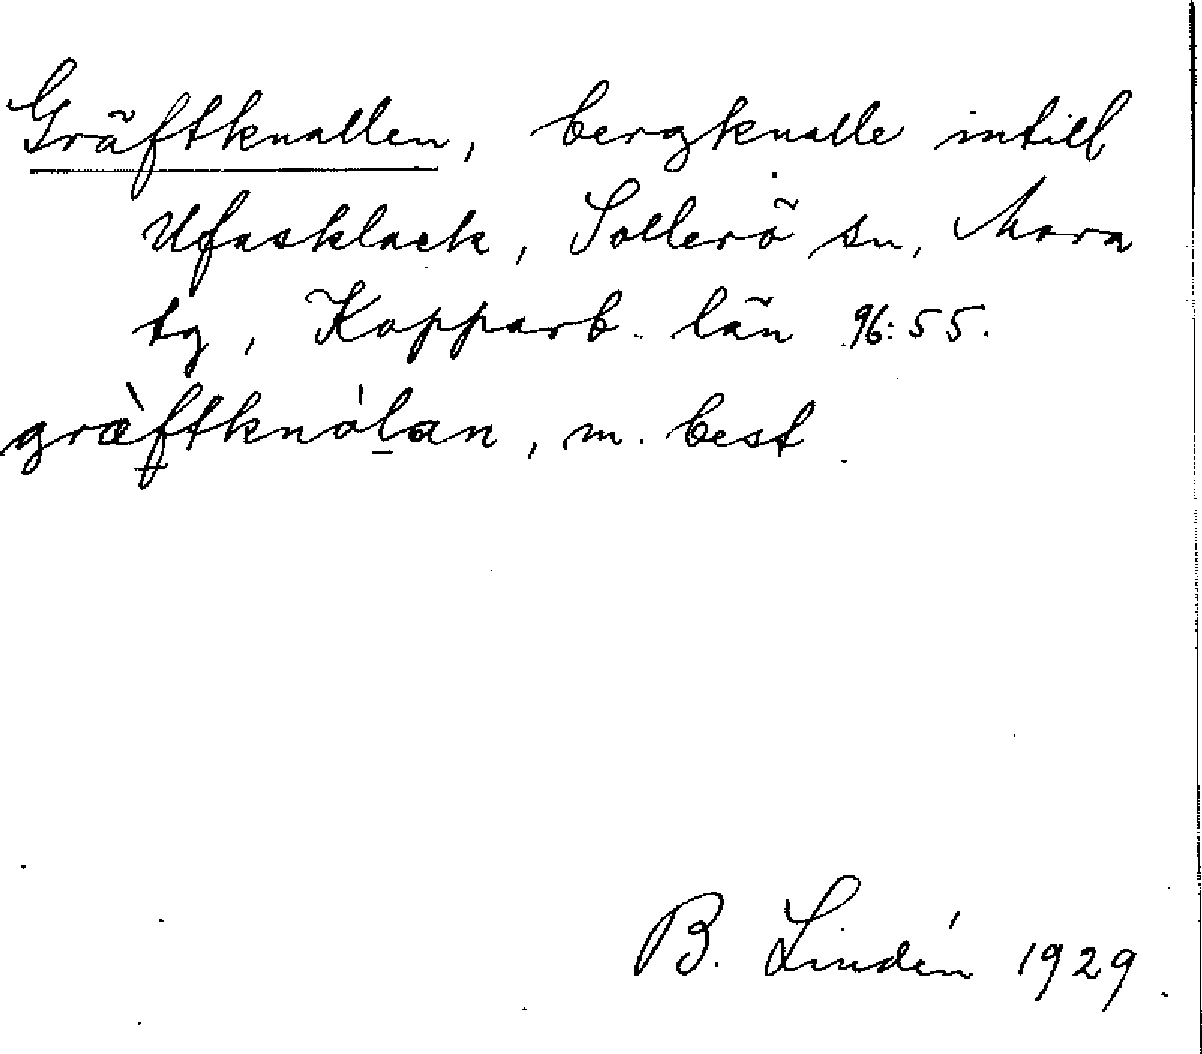 Gräftknallen, bergknalle intill
Ufasklack, Sollerö sn, Mora
tg, Kopparb. län 96:55.
græ̀ftknólan, m. best
B. Lindén 1929.